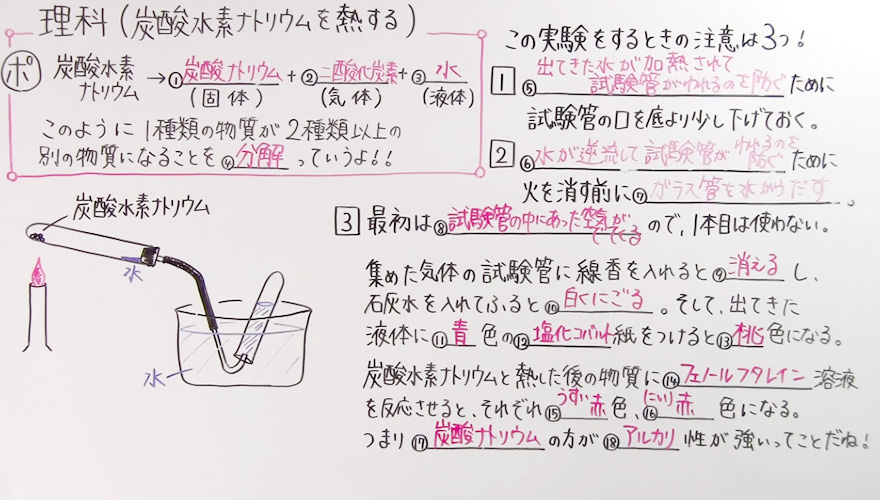 理科(炭酸水素ナトリウムを熱する)
ポ 炭酸水素ナトリウム → ①炭酸ナトリウム + ②二酸化炭素 + ③水
(固体) (気体) (液体)
このように1種類の物質が2種類以上の
別の物質になることを④分解っていうよ!!
炭酸水素ナトリウム
水
水
この実験をするときの注意は3つ!
1 ⑤出てきた水が加熱されて試験管がわれるのを防ぐために
試験管の口を底より少し下げておく。
2 ⑥水が逆流して試験管がわれるのを防ぐために
火を消す前に⑦ガラス管を水からだす。
3 最初は⑧試験管の中にあった空気がでてくるので、1本目は使わない。
集めた気体の試験管に線香を入れると⑨消えるし、
石灰水を入れてふると⑩白くにごる。そして、出てきた
液体に⑪青色の⑫塩化コバルト紙をつけると⑬桃色になる。
炭酸水素ナトリウムと熱した後の物質に⑭フェノールフタレイン溶液
を反応させると、それぞれ⑮うすい赤色、⑯こい赤色になる。
つまり⑰炭酸ナトリウムの方が⑱アルカリ性が強いってことだね!